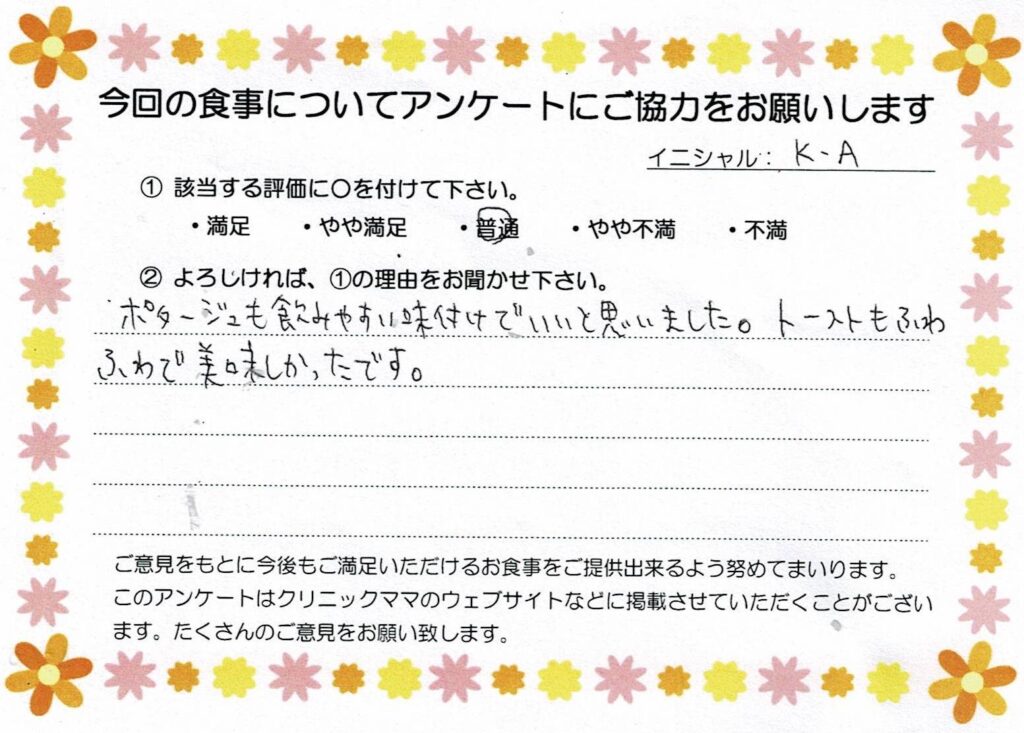 今回の食事についてアンケートにご協力をお願いします
イニシャル： K-A
① 該当する評価に〇を付けて下さい。
・満足 ・やや満足 ・普通 ・やや不満 ・不満
② よろしければ、①の理由をお聞かせ下さい。
ポタージュも飲みやすい味付けでいいと思いました。トーストもふわ
ふわで美味しかったです。
ご意見をもとに今後もご満足いただけるお食事をご提供出来るよう努めてまいります。
このアンケートはクリニックママのウェブサイトなどに掲載させていただくことがござい
ます。たくさんのご意見をお願い致します。